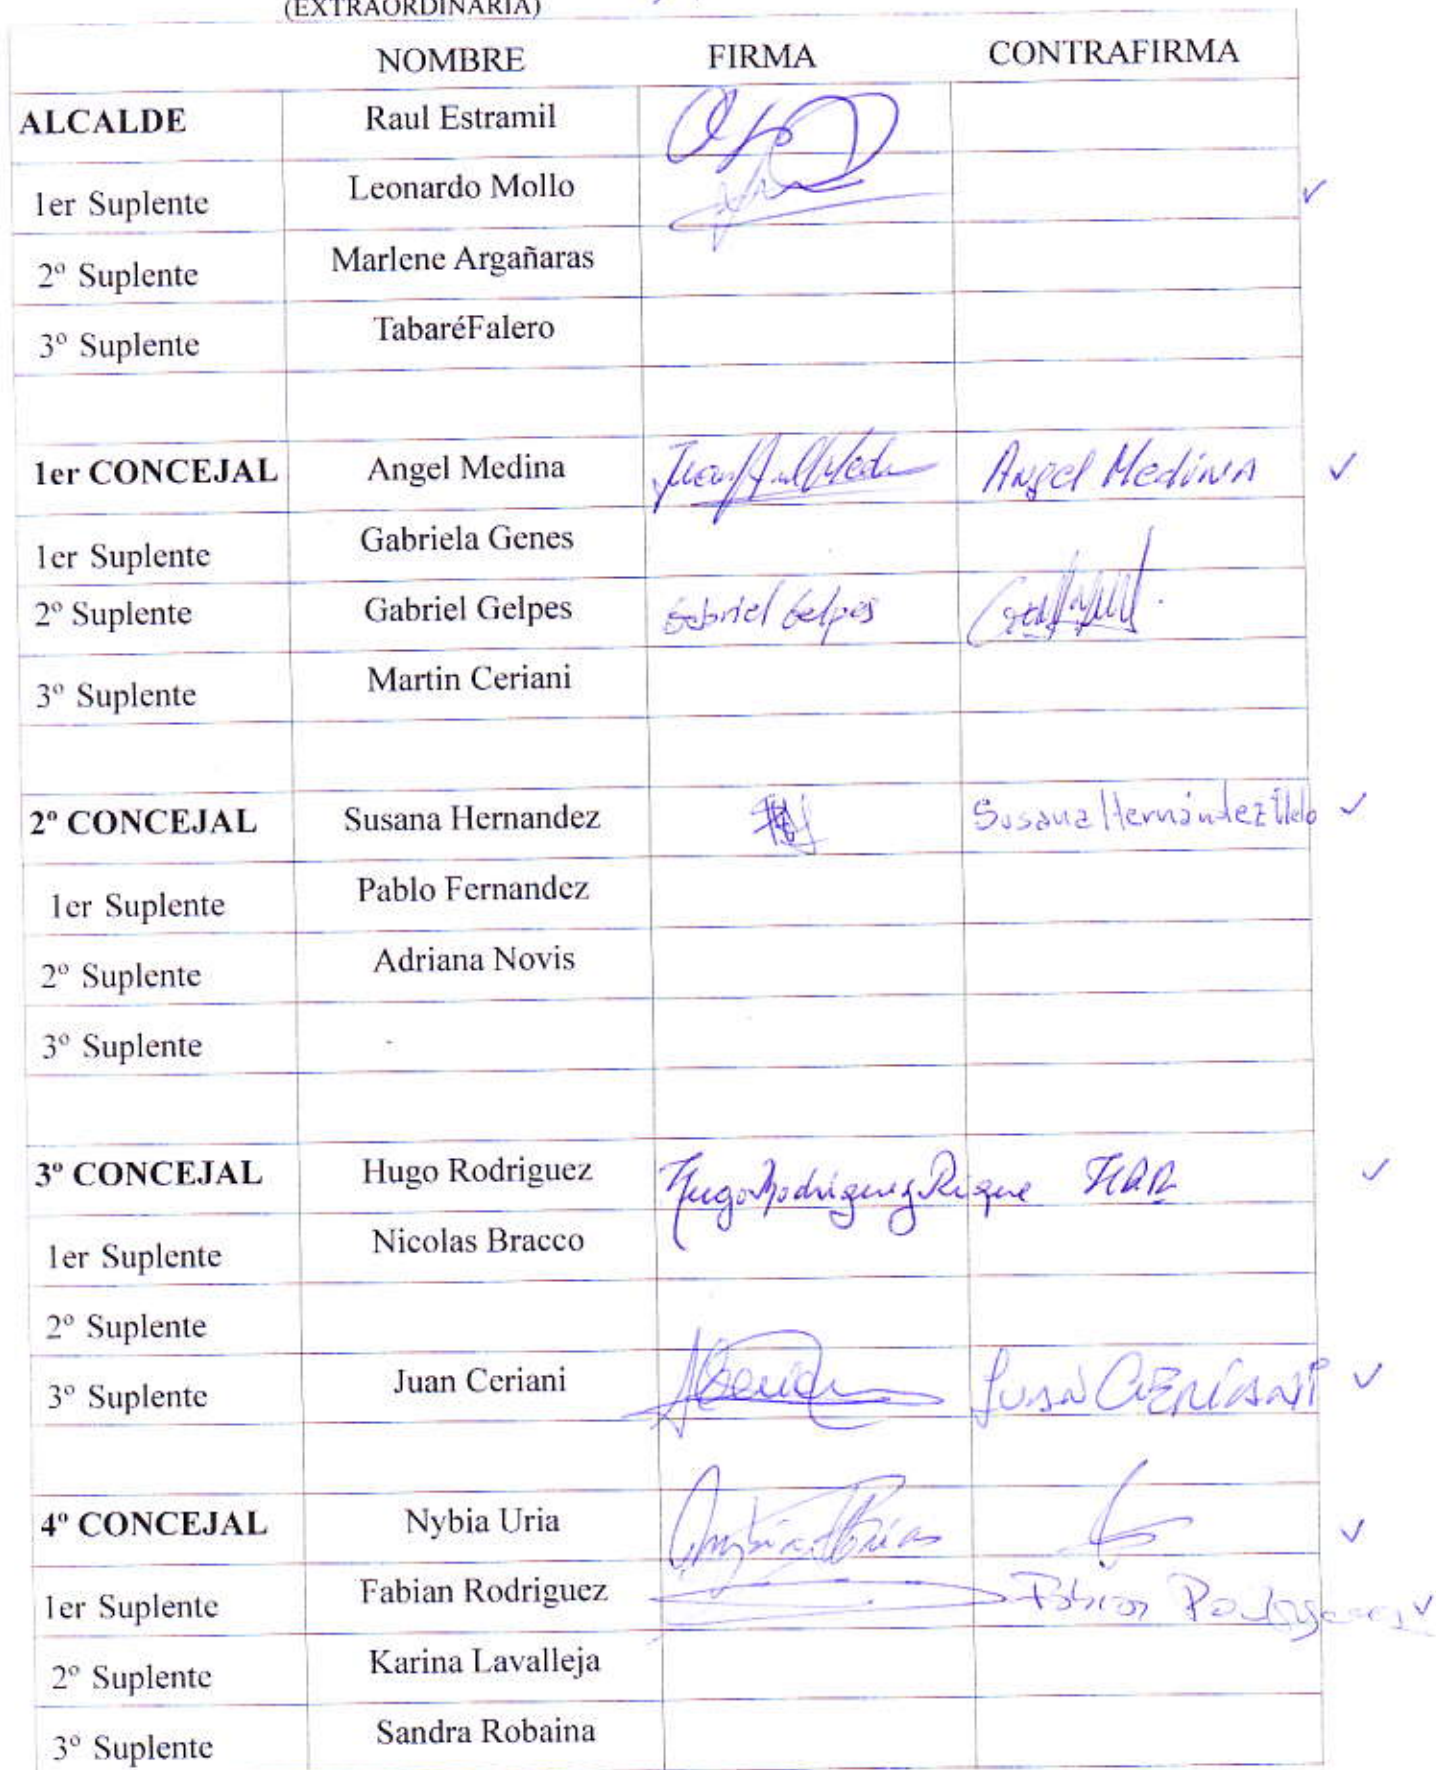 (EXTRAORDINARIA)
NOMBRE FIRMA CONTRAFIRMA
ALCALDE Raul Estramil
1er Suplente Leonardo Mollo
2º Suplente Marlene Argañaras
3º Suplente TabaréFalero
1er CONCEJAL Angel Medina Angel Medina
1er Suplente Gabriela Genes
2º Suplente Gabriel Gelpes Gabriel Gelpes
3º Suplente Martin Ceriani
2º CONCEJAL Susana Hernandez Susana Hernández
1er Suplente Pablo Fernandez
2º Suplente Adriana Novis
3º Suplente -
3º CONCEJAL Hugo Rodriguez Hugo Rodriguez
1er Suplente Nicolas Bracco
2º Suplente
3º Suplente Juan Ceriani Juan Ceriani
4º CONCEJAL Nybia Uria
1er Suplente Fabian Rodriguez Fabian Rodriguez
2º Suplente Karina Lavalleja
3º Suplente Sandra Robaina